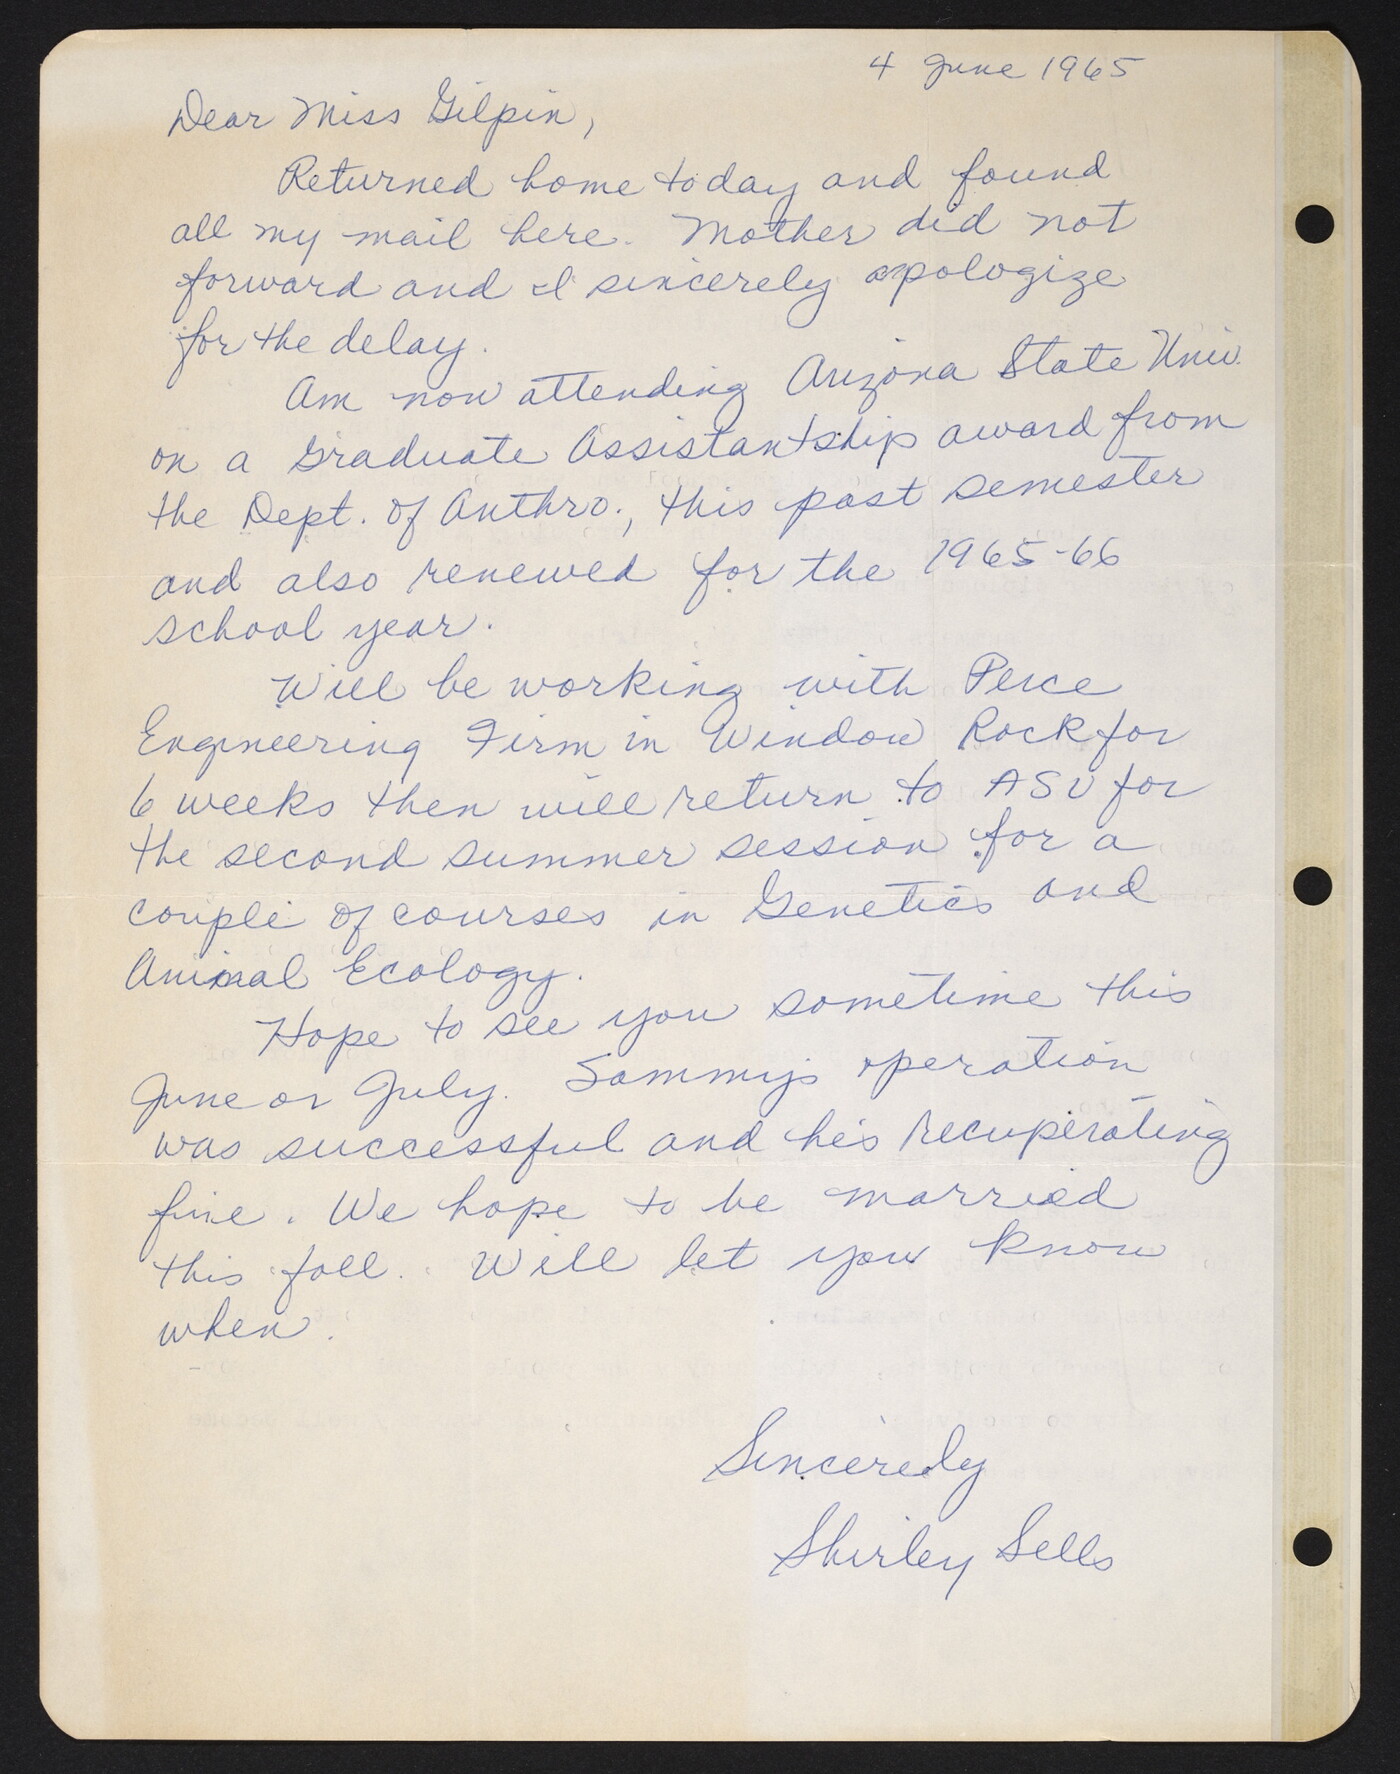 4 June 1965
Dear Miss Gilpin,
Returned home today and found
all my mail here. Mother did not
forward and I sincerely apologize
for the delay.
Am now attending Arizona State Univ.
on a Graduate Assistantship award from
the Dept. of Anthro., this past semester
and also renewed for the 1965-66
school year.
Will be working with Perce
Engineering Firm in Window Rock for
6 weeks then will return to ASU for
the second summer session for a
couple of courses in Genetics and
Animal Ecology.
Hope to see you sometime this
June or July. Sammy's operation
was successful and he's recuperating
fine. We hope to be married
this fall. Will let you know
when.
Sincerely
Shirley Sells